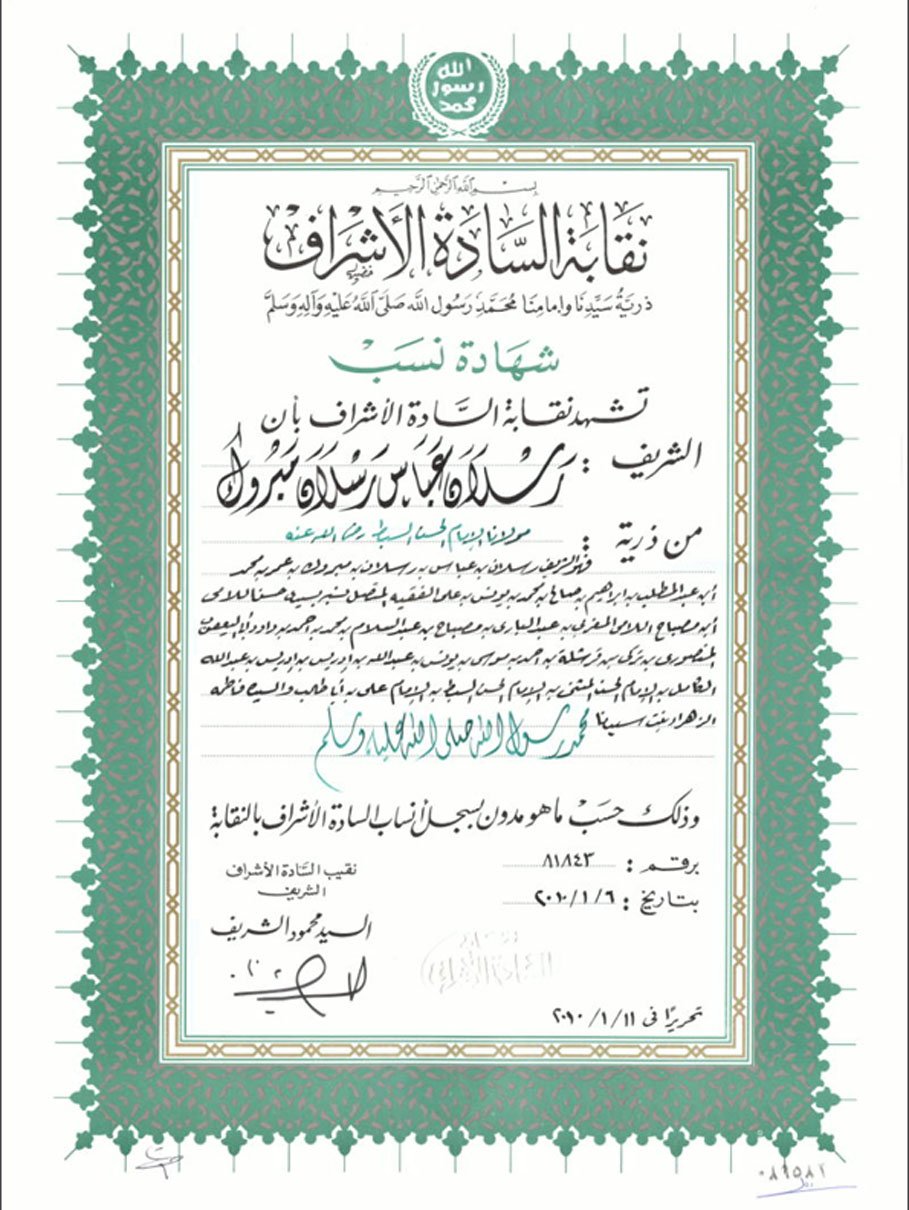 الله
رسول
محمد
بسم الله الرحمن الرحيم
نقابة السادة الأشراف
ذرية سيدنا وإمامنا محمد رسول الله صلى الله عليه وآله وسلم
شهادة نسب
تشهد نقابة السادة الأشراف بأن
الشريف : رسلان عباس رسلان مبروك
من ذرية : مولانا الإمام الحسن السبط رضى الله عنه
فهو الشريف رسلان بن عباس بن رسلان بن مبروك بن عمر بن محمد
ابن عبد المطلب بن ابراهيم بن صالح بن محمد بن يونس بن على الفقيه المتصل نسبه بسيدى حسن اللامى
ابن مصباح اللامى المغربى بن عبد البارى بن مصباح بن عبد السلام بن محمد بن احمد بن داود أبى اليعقوب
المنصورى بن تركى بن قرشلة بن احمد بن موسى بن يونس بن عبد الله بن ادريس بن ادريس بن عبد الله
الكامل بن الإمام الحسن المثنى بن الإمام الحسن السبط بن الإمام على بن أبا طالب والسيدة فاطمة
الزهراء بنت سيدنا محمد رسول الله صلى الله عليه وسلم
وذلك حسب ما هو مدون بسجل أنساب السادة الأشراف بالنقابة
برقم : ٨١٨٤٣
بتاريخ : ٢٠١٠/١/٦
نقيب السادة الأشراف
الشريف
السيد محمود الشريف
السادة الأشراف
تحريرًا فى ٢٠١٠/١/١١